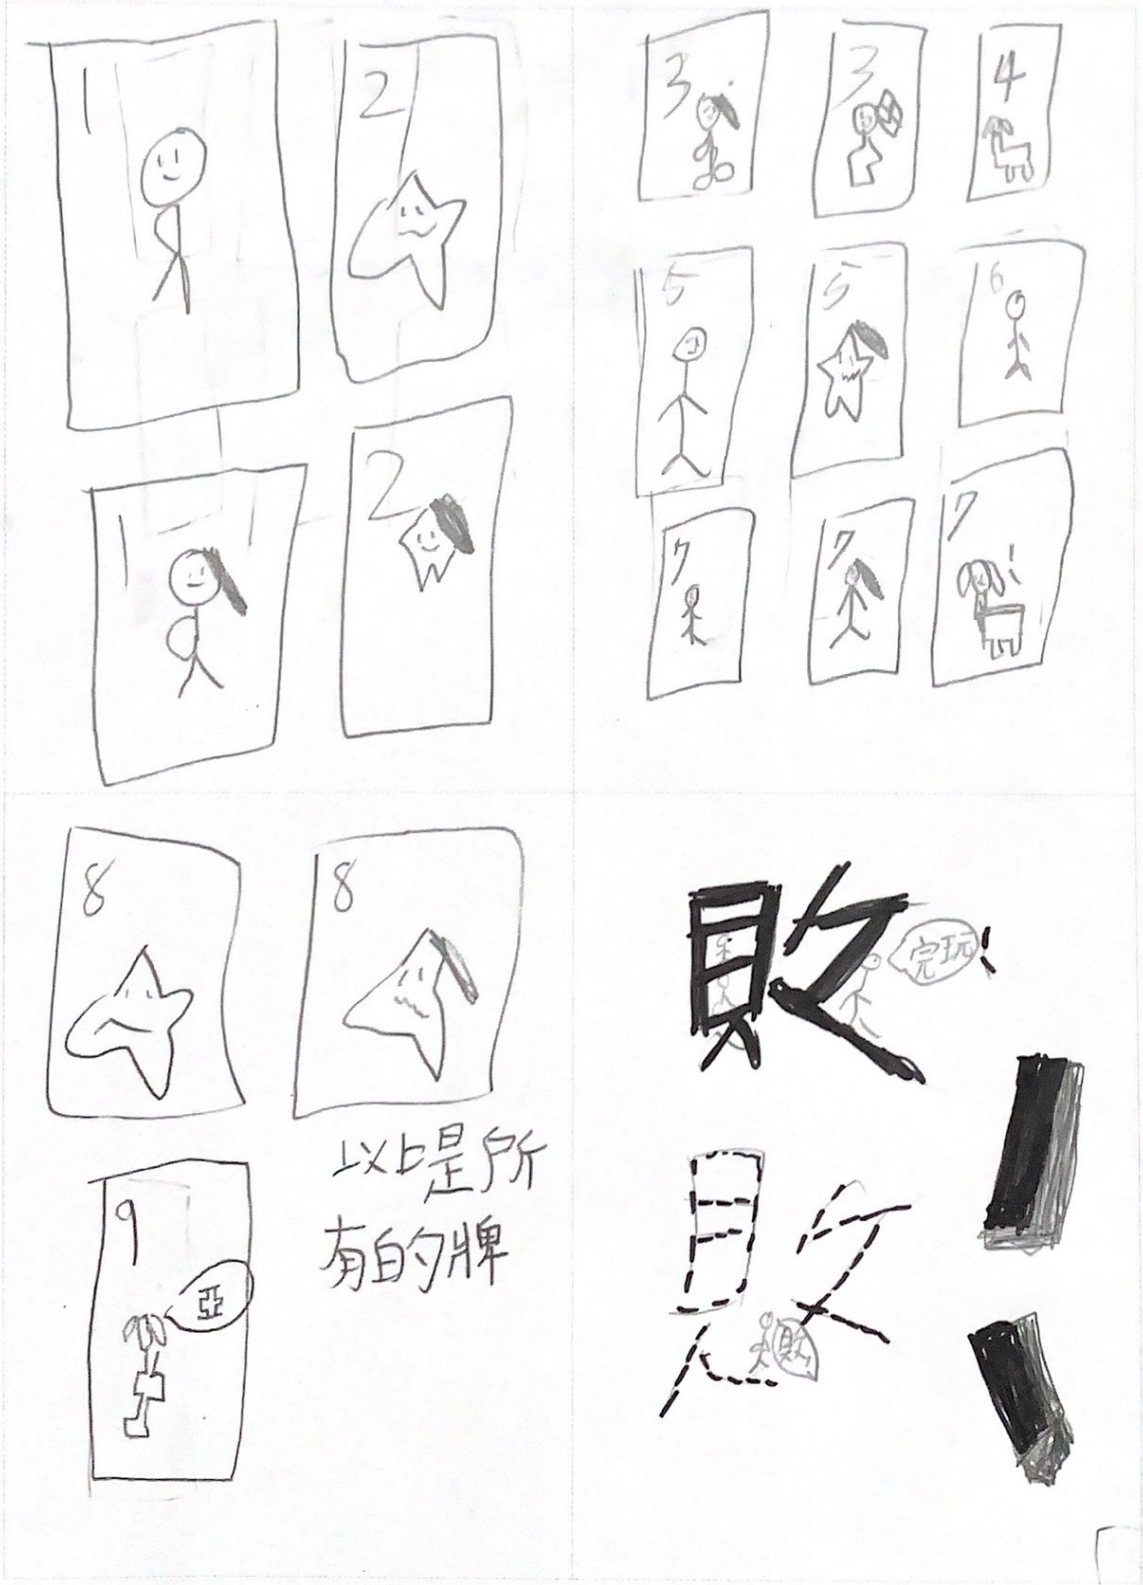 1
2
1
2
3
3
4
5
5
6
7
7
7
8
8
9
亞
以上是所
有的牌
敗
完玩
敗
敗